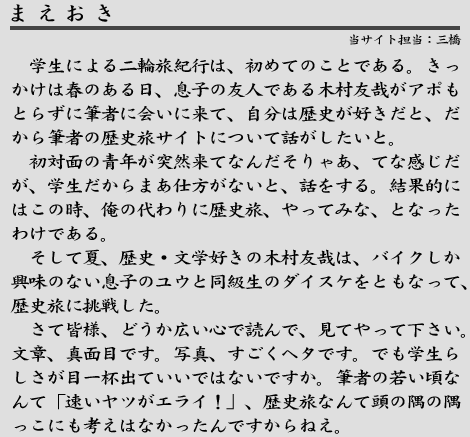 まえおき
当サイト担当：三橋
学生による二輪旅紀行は、初めてのことである。きっ
かけは春のある日、息子の友人である木村友哉がアポも
とらずに筆者に会いに来て、自分は歴史が好きだと、だ
から筆者の歴史旅サイトについて話がしたいと。
初対面の青年が突然来てなんだそりゃあ、てな感じだ
が、学生だからまあ仕方がないと、話をする。結果的に
はこの時、俺の代わりに歴史旅、やってみな、となった
わけである。
そして夏、歴史・文学好きの木村友哉は、バイクしか
興味のない息子のユウと同級生のダイスケをともなって、
歴史旅に挑戦した。
さて皆様、どうか広い心で読んで、見てやって下さい。
文章、真面目です。写真、すごくヘタです。でも学生ら
しさが目一杯出ていいではないですか。筆者の若い頃な
んて「速いヤツがエライ！」、歴史旅なんて頭の隅の隅
っこにも考えはなかったんですからねえ。